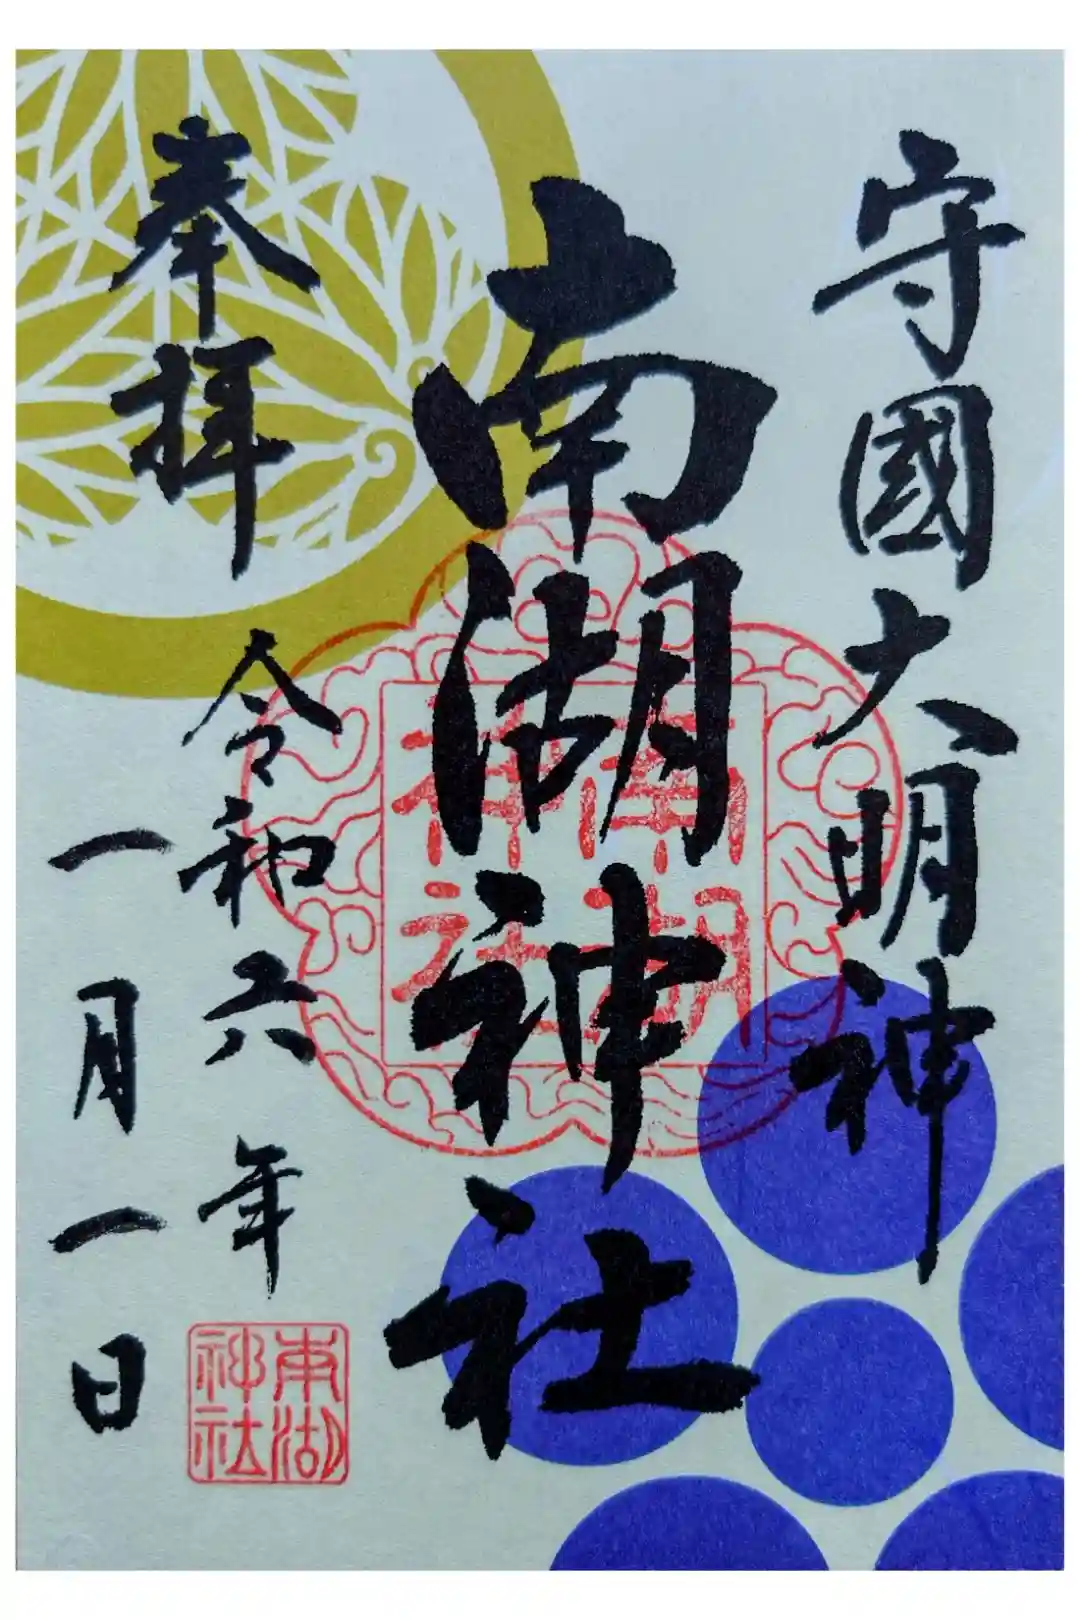 守國大明神
南湖神社
南湖
神社
奉拝
令和六年
一月一日
南湖
神社